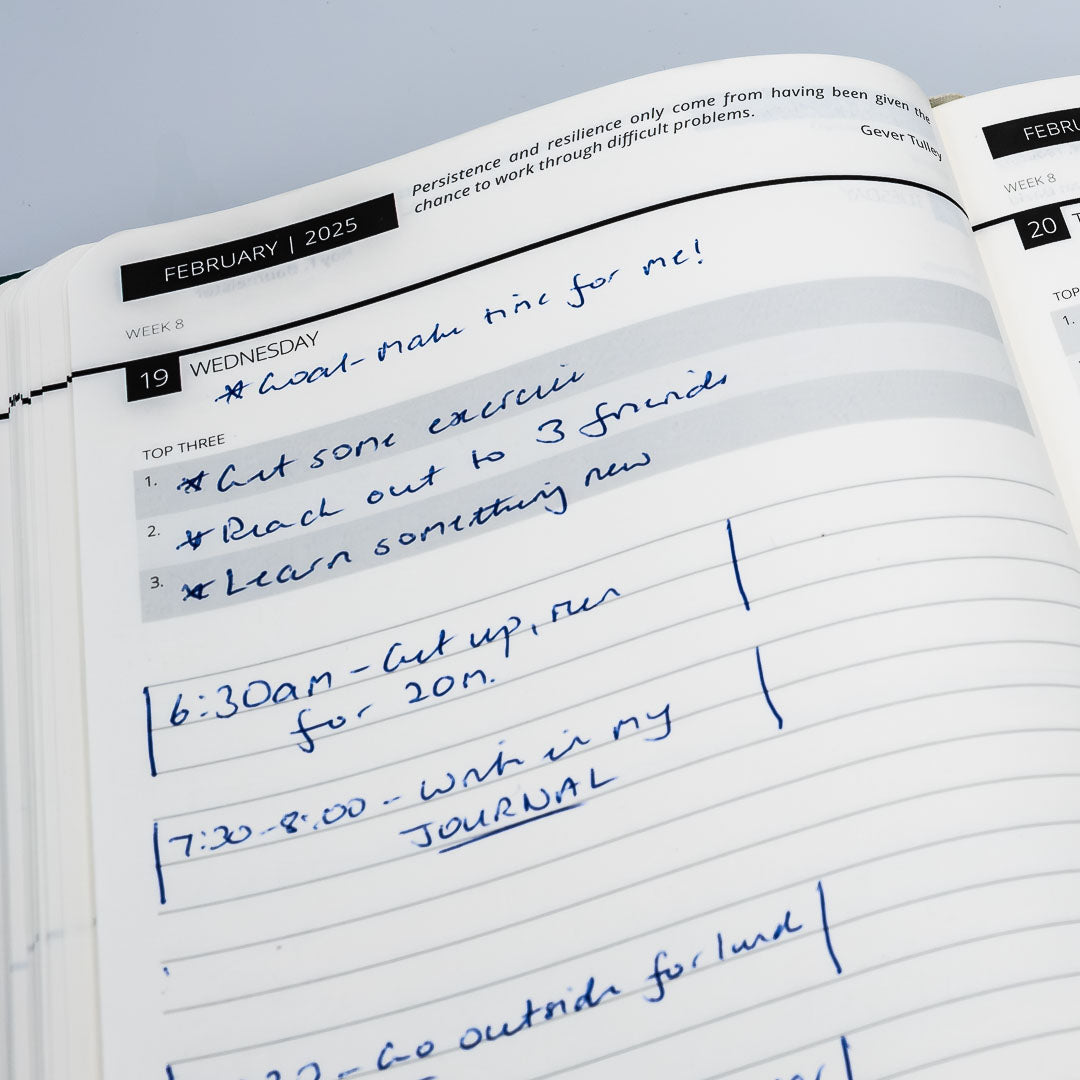 Persistence and resilience only come from having been given the
chance to work through difficult problems.
Gever Tulley
FEBRUARY | 2025
WEEK 8
19 WEDNESDAY
* Goal - Make time for me!
TOP THREE
1. * Get some exercise
2. * Reach out to 3 friends
3. * Learn something new
6:30am - Get up, run
for 20m.
7:30-8:00 - Write in my
JOURNAL
- Go outside for lunch
FEBRU
WEEK 8
20 T
TOP
1.